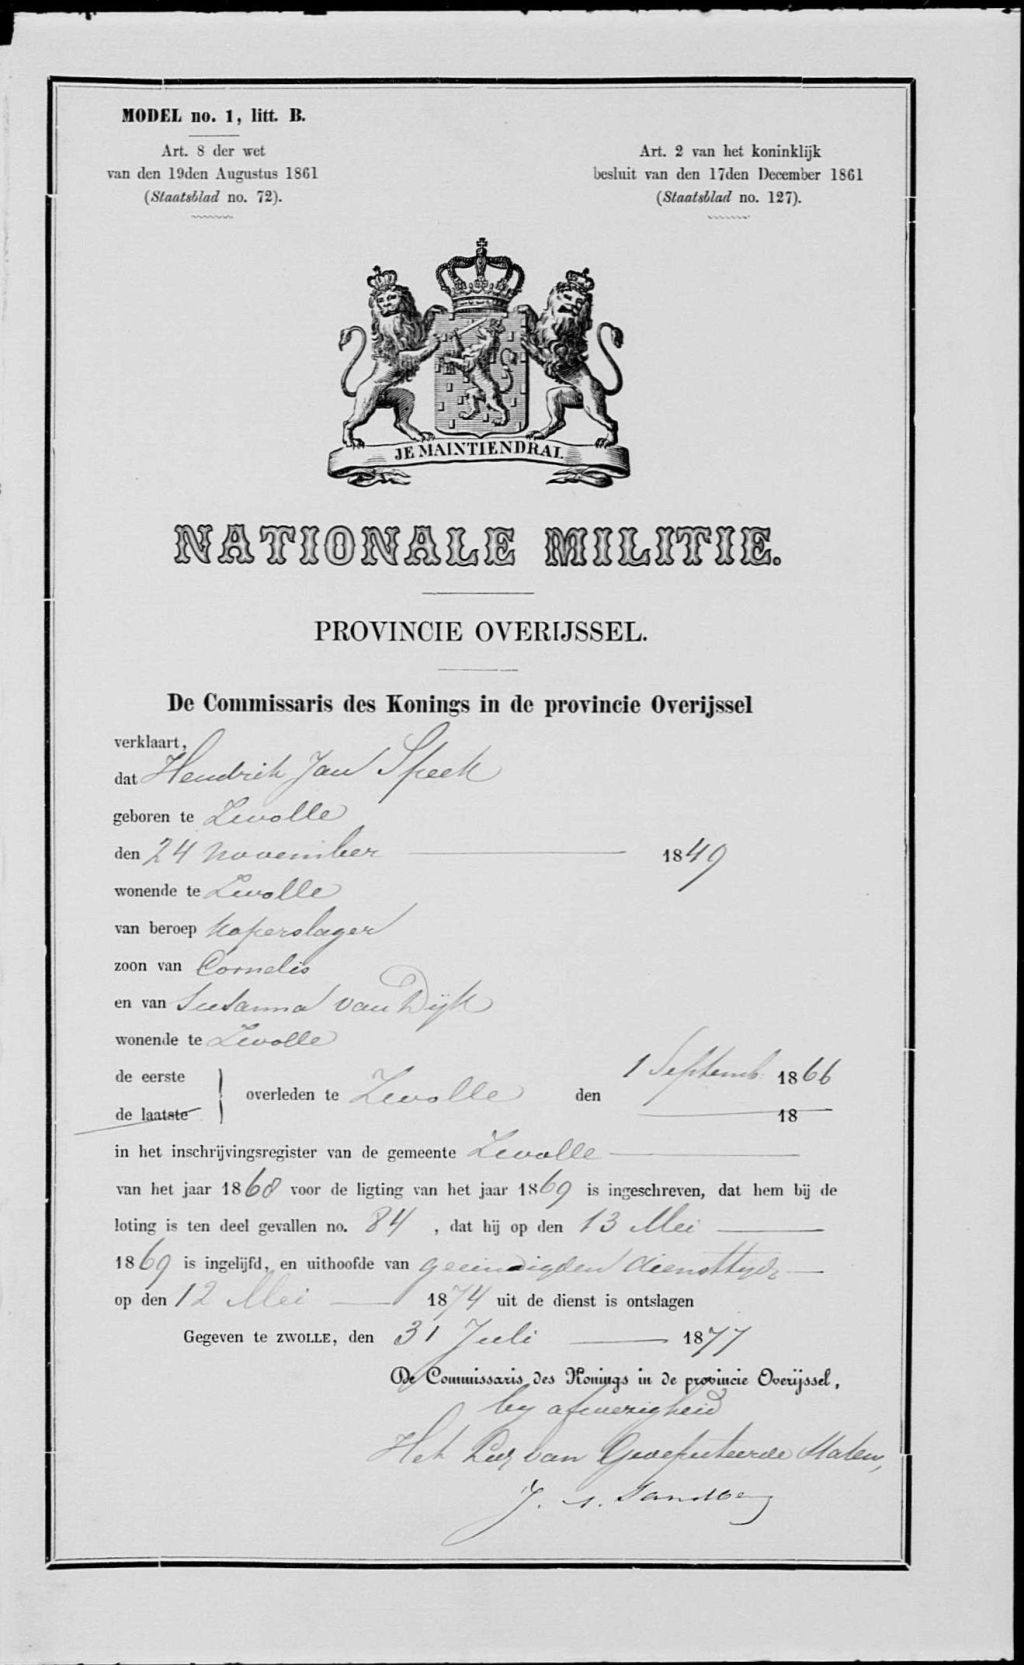 MODEL no. 1, litt. B.
Art. 8 der wet
van den 19den Augustus 1861
(Staatsblad no. 72).
Art. 2 van het koninklijk
besluit van den 17den December 1861
(Staatsblad no. 127).
JE MAINTIENDRAI.
NATIONALE MILITIE.
PROVINCIE OVERIJSSEL.
De Commissaris des Konings in de provincie Overijssel
verklaart,
dat Hendrik Jan Speek
geboren te Zwolle
den 24 November 1849
wonende te Zwolle
van beroep koperslager
zoon van Cornelis
en van Susanna van Dijk
wonende te Zwolle
de eerste overleden te Zwolle den 1 Septemb. 1866
de laatste 18
in het inschrijvingsregister van de gemeente Zwolle
van het jaar 1868 voor de ligting van het jaar 1869 is ingeschreven, dat hem bij de
loting is ten deel gevallen no. 84, dat hij op den 13 Mei
1869 is ingelijfd, en uithoofde van geëindigden diensttijd
op den 12 Mei 1874 uit de dienst is ontslagen
Gegeven te ZWOLLE, den 31 Juli 1877
De Commissaris des Konings in de provincie Overijssel,
by afwezigheid
Het Lid van Gedeputeerde Staten,
J. A. Sandberg